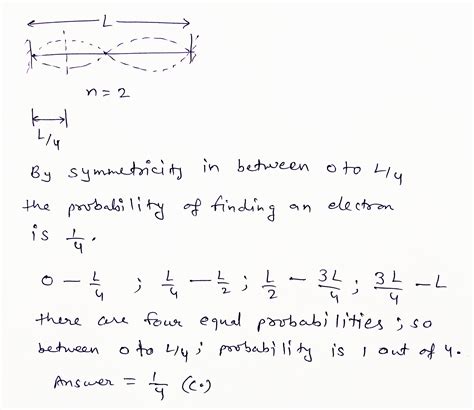 L
n = 2
L/4
By symmetricity in between 0 to L/4
the probability of finding an electron
is 1/4.
0 – L/4 ; L/4 – L/2 ; L/2 – 3L/4 ; 3L/4 – L
there are four equal probabilities ; so
between 0 to L/4 ; probability is 1 out of 4.
Answer = 1/4 (C.)